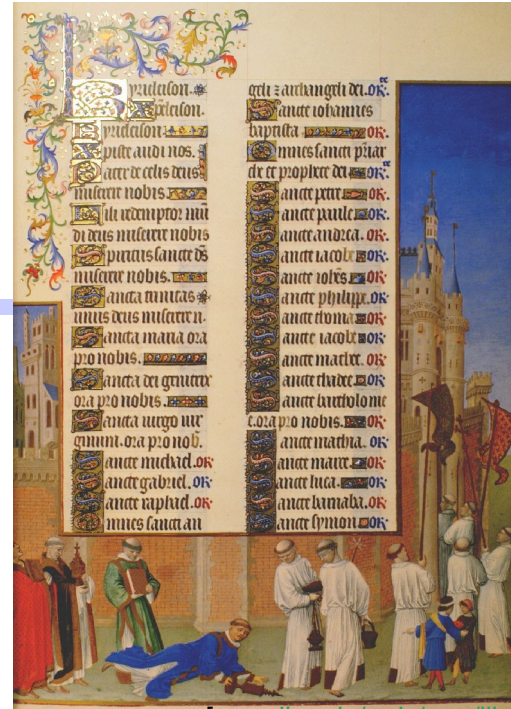 Kyrieleison.
Xp̄eleison.
Kyrieleison
Xpiste audi nos.
Pater de celis deus
miserere nobis.
Fili redemptor mū
di deus miserere nobis
Spiritus sancte d̄s
miserere nobis.
Sancta trinitas
unus deus miserere n.
Sancta maria ora
pro nobis.
Sancta dei genitrix
ora pro nobis.
Sancta uirgo uir
ginum. ora pro nob.
Sancte michael. or.
Sancte gabriel. or.
Sancte raphael. or.
Omnes sancti an
geli z archangeli dei. or.
Sancte iohannes
baptista or.
Omnes sancti p̄riar
che et prophete dei or.
Sancte petre or.
Sancte paule or.
Sancte andrea. or.
Sancte iacobe or.
Sancte ioh̄es or.
Sancte philippe. or.
Sancte thoma or.
Sancte iacobe or.
Sancte mathee. or.
Sancte thadee or.
Sancte bartholome
e. ora pro nobis. or.
Sancte mathia. or.
Sancte marce or.
Sancte luca. or.
Sancte barnaba. or.
Sancte symon or.